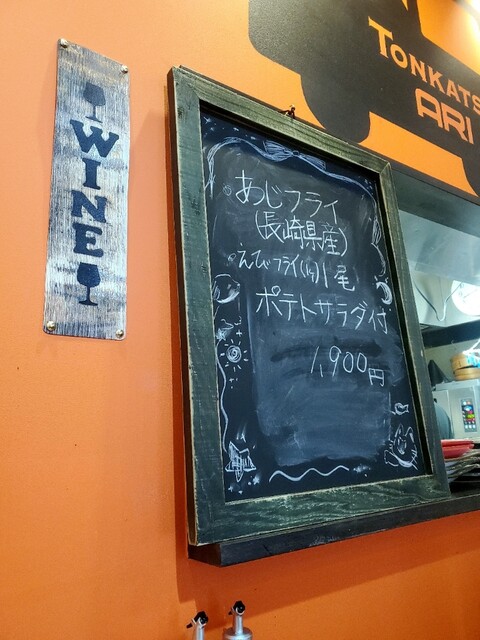 WINE
TONKATS
ARI
あじフライ
(長崎県産)
えびフライ 1尾
ポテトサラダ付
1,900円